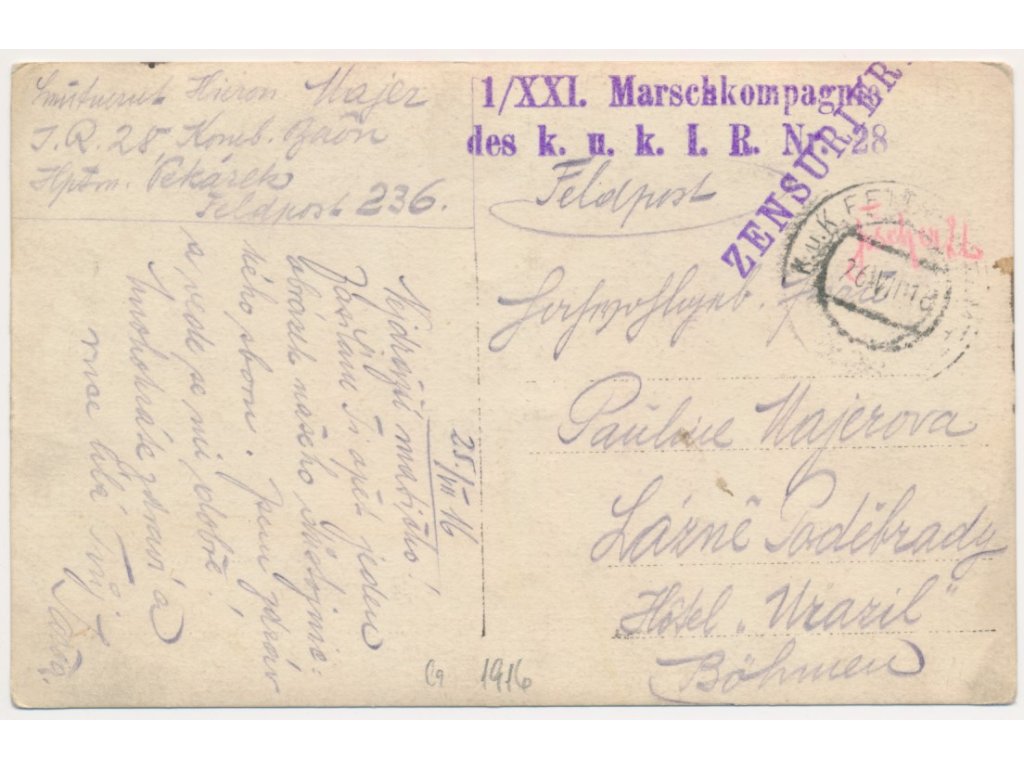 Hieron Majer
I. R. 28 Komb. Baon
Hptm. Pekárek
Feldpost 236.
1/XXI. Marschkompagnie
des k. u. k. I. R. Nr. 28
ZENSURIERT
Feldpost
K.u.K. FELDPOSTAMT
Hochwohlgeb. Frau
Pauline Majerova
Lázně Poděbrady
Hôtel „Urazil"
Böhmen
25./VII 16
Nejdražší mamičko!
Zasílám Ti opět jeden
obrázek našeho důstojnic-
kého sboru. Jsem zdráv
a vede se mi dobře.
Mnohokráte zdraví a
ruce líbá Tvůj
1916